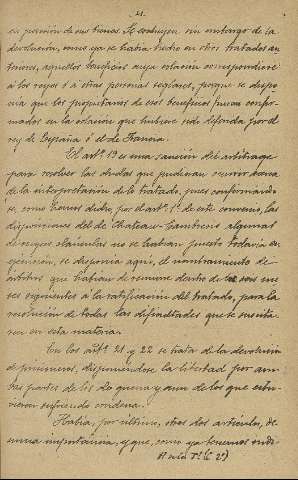 21.
en posesión de sus bienes. Se excluyen, sin embargo de la
devolución, como ya se había hecho en otros tratados an-
teriores, aquellos beneficios cuya colación correspondiere
á los reyes ó á otras personas seglares, porque se dispo-
nía que los poseedores de esos beneficios fueran confir-
mados en la colación que hubiese sido deferida por el
rey de España ó el de Francia.
El artº 19 es una sanción del arbitraje
para resolver las dudas que pudieran ocurrir acerca
de la interpretación de lo tratado, pues conformando-
se, como hemos dicho, por el artº 1º de este convenio, las
disposiciones del de Chateau-Cambresis algunas
de cuyas cláusulas no se habían puesto todavía en
ejecución, se disponía aquí, el nombramiento de
árbitros que habían de reunirse dentro de los seis me-
ses siguientes á la ratificación del tratado, para la
resolución de todas las dificultades que se suscita-
ren en esta materia.
En los artºs 21 y 22 se trata de la devolución
de prisioneros, disponiéndose la libertad por am-
bas partes de los de guerra y aun de los que estu-
vieran sufriendo condena.
Había, por último, otros dos artículos, de
suma importancia, y que, como ya tenemos indi-